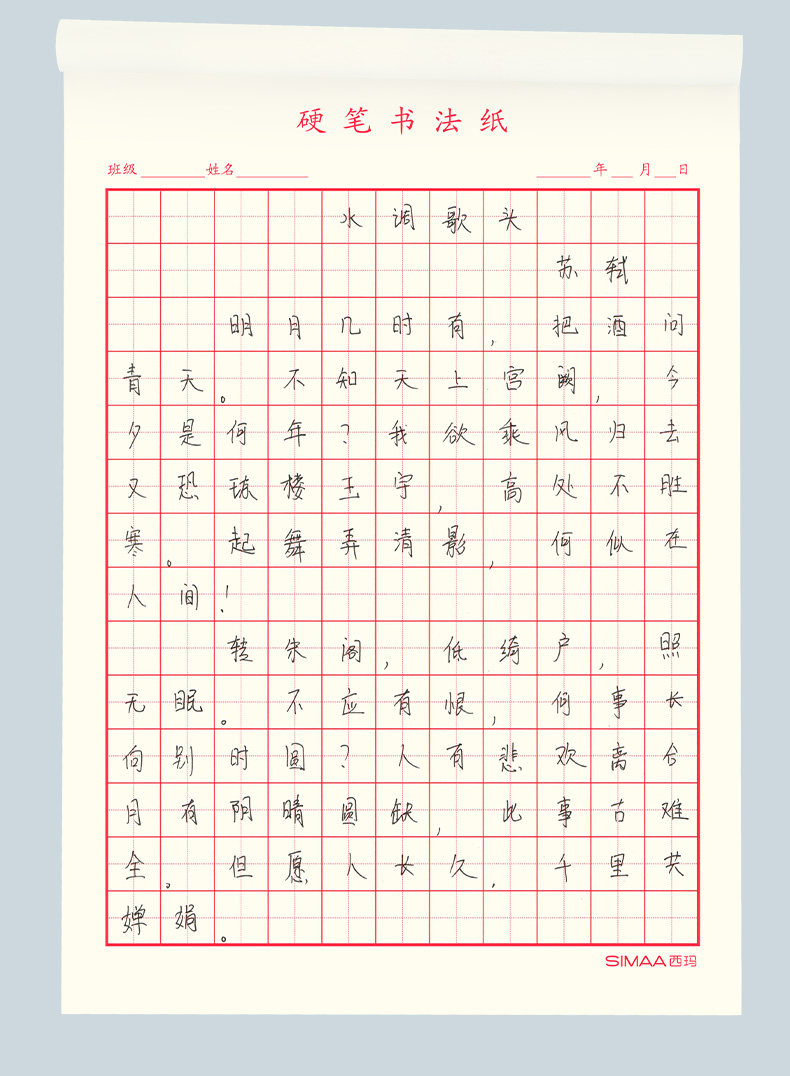 硬笔书法纸
班级 姓名 年 月 日
水调歌头
苏轼
明月几时有，把酒问
青天。不知天上宫阙，今
夕是何年？我欲乘风归去
又恐琼楼玉宇，高处不胜
寒。起舞弄清影，何似在
人间！
转朱阁，低绮户，照
无眠。不应有恨，何事长
向别时圆？人有悲欢离合
月有阴晴圆缺，此事古难
全。但愿人长久，千里共
婵娟。
SIMAA西玛